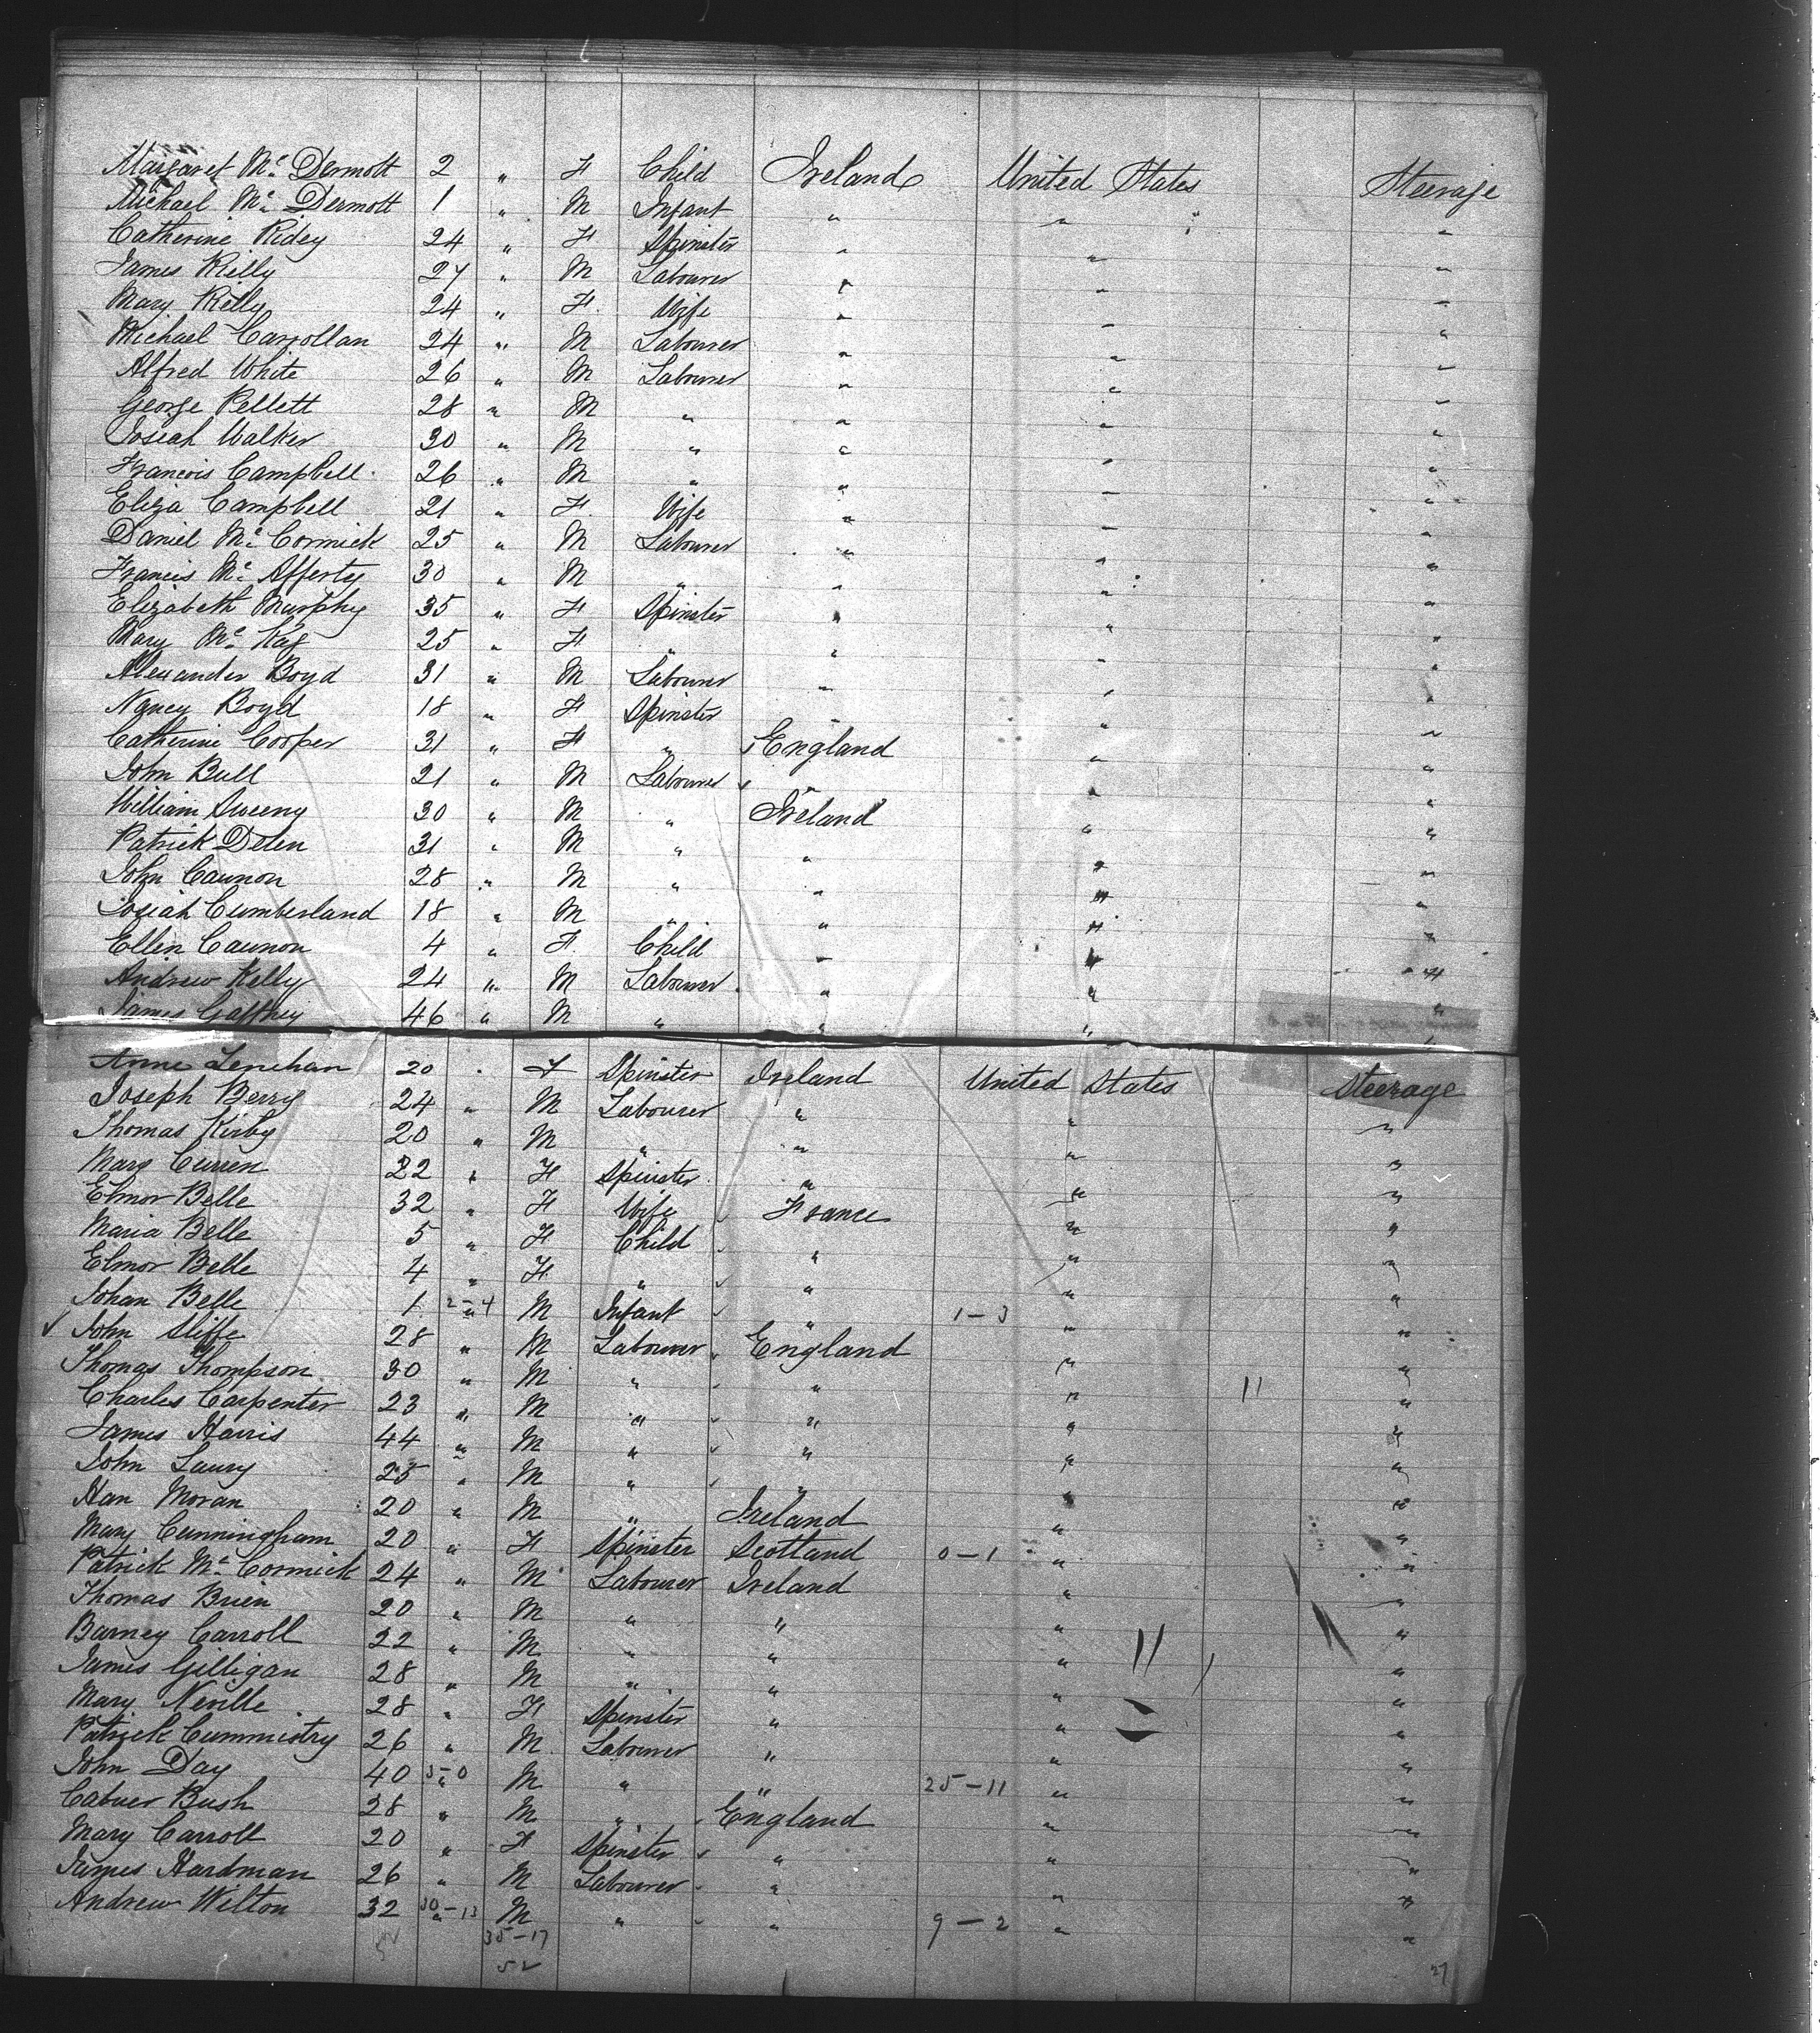 Margaret Mc Dermott 2 " F Child Ireland United States Steerage
Michael Mc Dermott 1 " M Infant " " "
Catherine Ridey 24 " F Spinster " " "
James Rielly 27 " M Labourer " " "
Mary Rielly 24 " F Wife " " "
Michael Carrollan 24 " M Labourer " " "
Alfred White 26 " M Labourer " " "
George Pellett 28 " M " " " "
Josiah Walker 30 " M " " " "
Francois Campbell 26 " M " " " "
Eliza Campbell 21 " F Wife " " "
Daniel Mc Cormick 25 " M Labourer " " "
Francis Mc Afferty 30 " M " " " "
Elizabeth Murphy 35 " F Spinster " " "
Mary Mc Kay 25 " F " " " "
Alexander Boyd 31 " M Labourer " " "
Nancy Boyd 18 " F Spinster " " "
Catherine Cooper 31 " F " England " "
John Bull 21 " M Labourer " " "
William Sweeny 30 " M " Ireland " "
Patrick Delen 31 " M " " " "
John Cannon 28 " M " " " "
Josiah Cumberland 18 " M " " " "
Ellen Cannon 4 " F Child " " "
Andrew Kelly 24 " M Labourer " " "
James Gaffney 46 " M " " " "
Anne Lenehan 20 " F Spinster Ireland United States Steerage
Joseph Berry 24 " M Labourer " " "
Thomas Kirby 20 " M " " " "
Mary Curren 22 " F Spinster " " "
Elmor Belle 32 " F Wife France " "
Maria Belle 5 " F Child " " "
Elmor Belle 4 " F " " " "
Johan Belle 1 2-4 " M Infant " 1-3 " "
John Sliffe 28 " M Labourer England " "
Thomas Thompson 30 " M " " " 11 "
Charles Carpenter 23 " M " " " "
James Harris 44 " M " " " "
John Laury 25 " M " " " "
Han Moran 20 " M " Ireland " "
Mary Cunningham 20 " F Spinster Scotland 0-1 " "
Patrick Mc Cormick 24 " M Labourer Ireland " "
Thomas Brien 20 " M " " " "
Barney Carroll 22 " M " " " "
James Gilligan 28 " M " " " "
Mary Neville 28 " F Spinster " " "
Patrick Cummistry 26 " M Labourer " " "
John Day 40 " M " " 25-11 " "
Bush 28 " M " England " "
Mary Carroll 20 " F Spinster " " "
James Hardman 26 " M Labourer " " "
Andrew Wilton 32 30-13 " M " " 9-2 " "
35-17
52
27